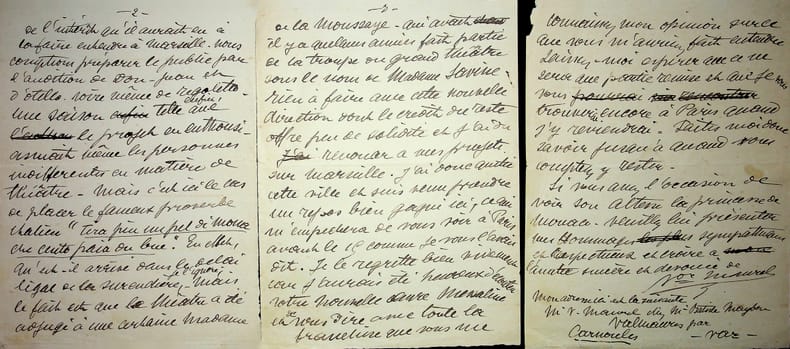 - 2 -
de l'intérêt qu'il aurait eu à
la faire entendre à Marseille. nous
comptions préparer le public par
l'audition de Don-juan et
d'otello. voire même de rigoletto.
une saison enfin telle que
le projet en enthousi-
asmait même les personnes
indifférentes en matière de
théâtre - Mais c'est ici le cas
de placer le fameux proverbe
italien "tira piu un pel di mona
che cento paia di bue". En effet,
qu'est-il arrivé dans le délai
légal de la surenchère, je l'ignore - Mais
le fait est que le théâtre a été
adjugé à une certaine Madame
- 3 -
de la Moussaye - qui avait
il y a quelques années fait partie
de la troupe du grand théâtre
sous le nom de Madame Lavine.
rien à faire avec cette nouvelle
direction dont le crédit du reste
offre peu de solidité et j'ai du
renoncer à mes projets
sur Marseille. j'ai donc quitté
cette ville et suis venu prendre
un repos bien gagné ici, ce qui
m'empêchera de vous voir à Paris
avant le 15 comme je vous l'avais
dit. Je le regrette bien vivement
car j'aurais été heureux d'écouter
votre nouvelle œuvre Messaline
et de vous dire avec toute la
franchise que vous me
connaissez mon opinion sur ce
que vous m'auriez fait entendre
Laissez-moi espérer que ce ne
sera que partie remise et que je
vous
trouverai encore à Paris quand
j'y reviendrai. Dites moi donc
savoir jusqu'à quand vous
comptez y rester.
Si vous avez l'occasion de
voir son altesse la princesse de
monaco. veuillez lui présenter
mes hommages sympathiques
et respectueux et croire à
l'amitié sincère et dévouée de
Vor Maurel
mon adresse est la suivante
Mr V. Maurel chez Mr Batiste Maybon
Valmaures par
Carnoules
- Var -